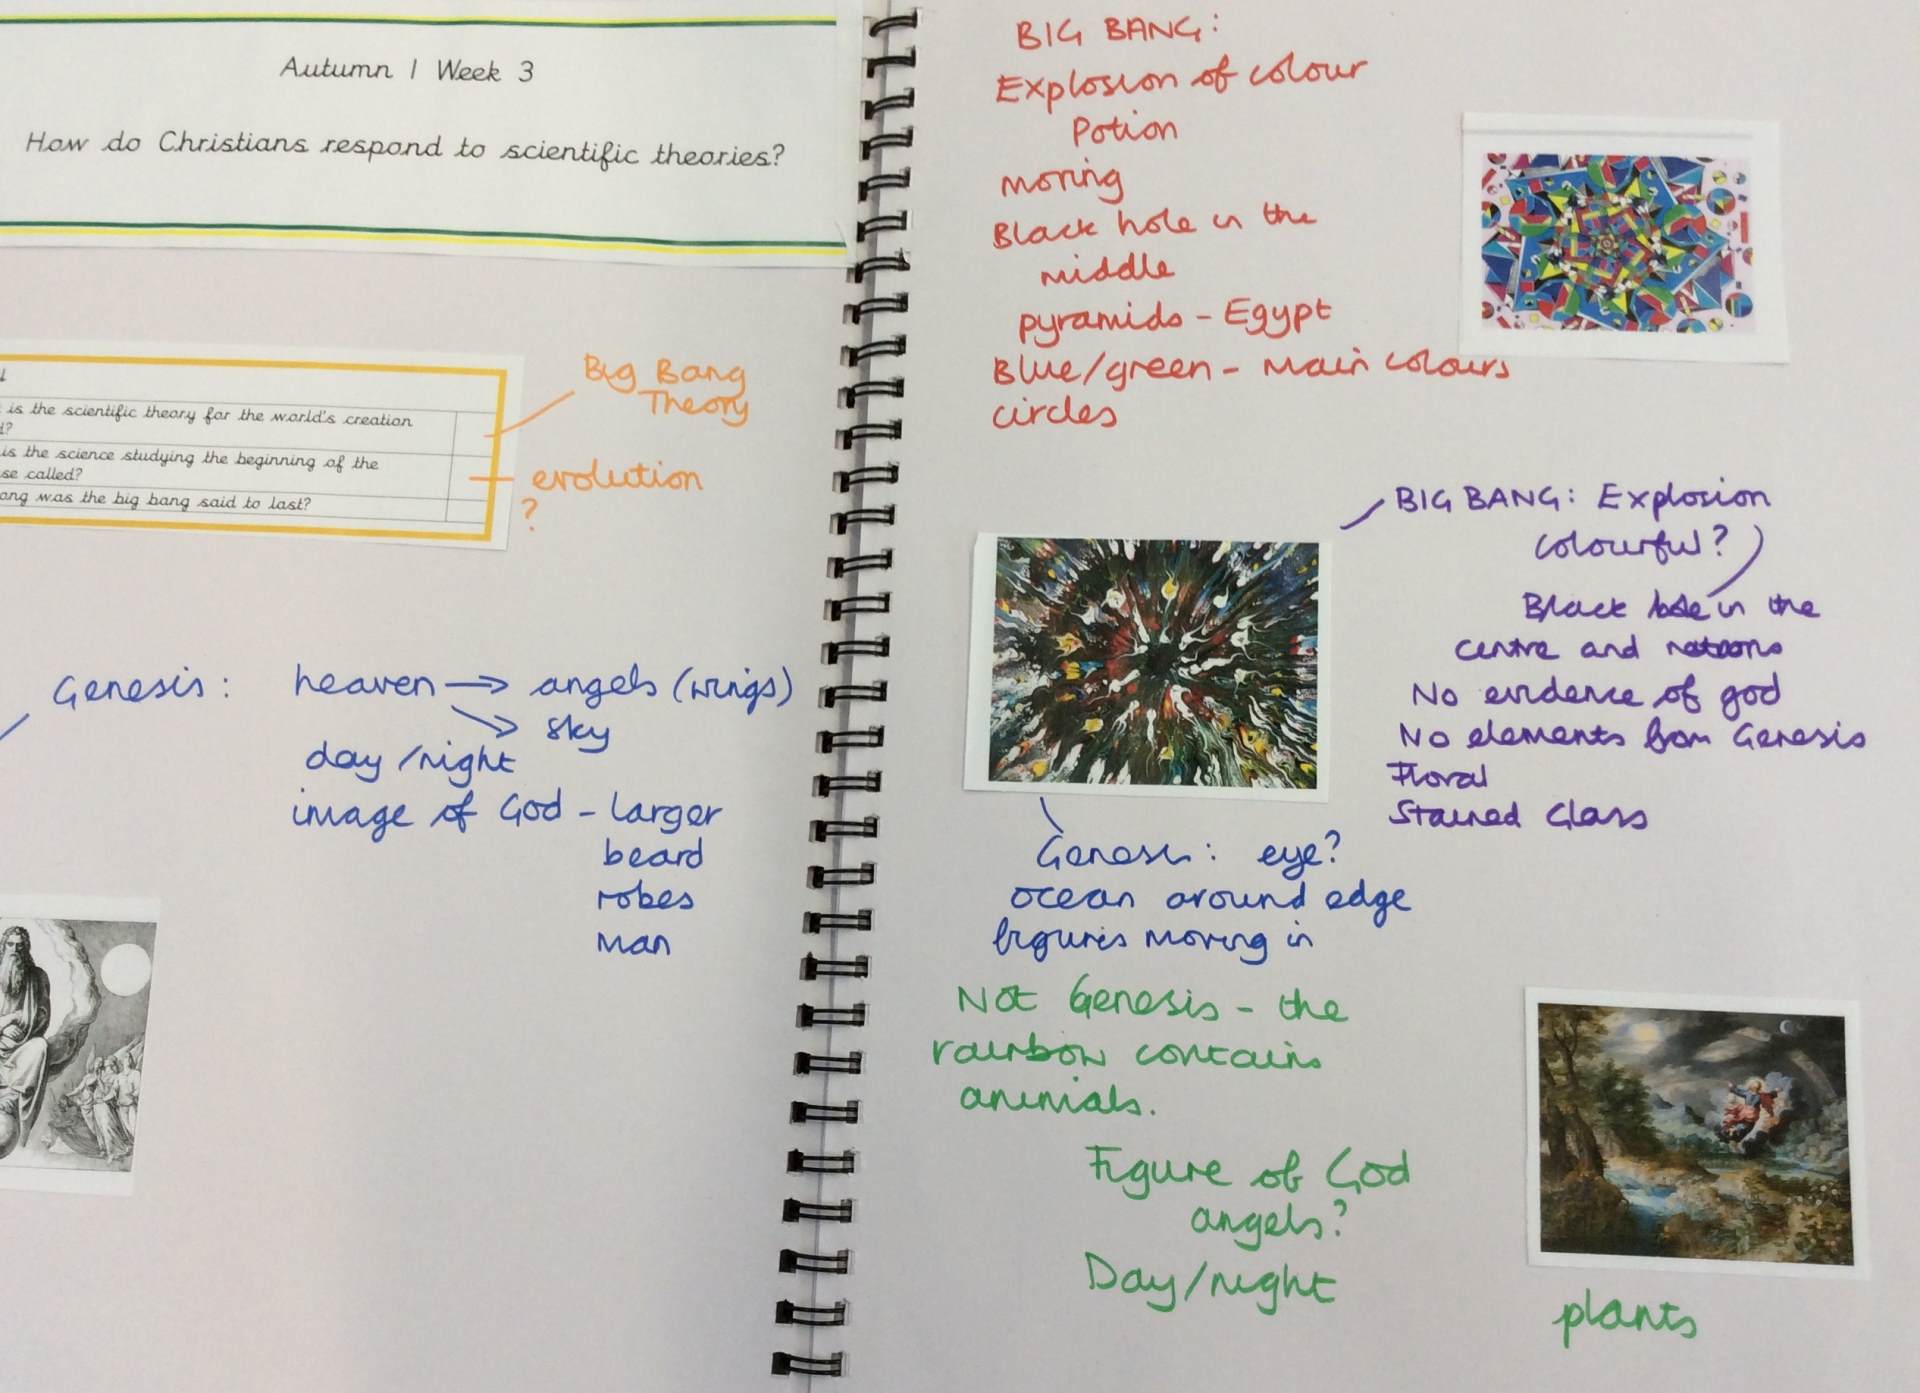 Autumn 1 Week 3
How do Christians respond to scientific theories?
is the scientific theory for the world's creation
d?
is the science studying the beginning of the
se called?
ong was the big bang said to last?
Big Bang
Theory
evolution
?
Genesis: heaven → angels (wings)
→ sky
day/night
image of God - larger
beard
robes
man
BIG BANG:
Explosion of colour
Potion
moving
Black hole in the
middle
pyramids - Egypt
Blue/green - main colours
circles
BIG BANG: Explosion
colourful?
Black hole in the
centre and
No evidence of god
No elements from Genesis
Floral
Stained Glass
Genesis: eye?
ocean around edge
figures moving in
Not Genesis - the
rainbow contains
animals.
Figure of God
angels?
Day/night
plants